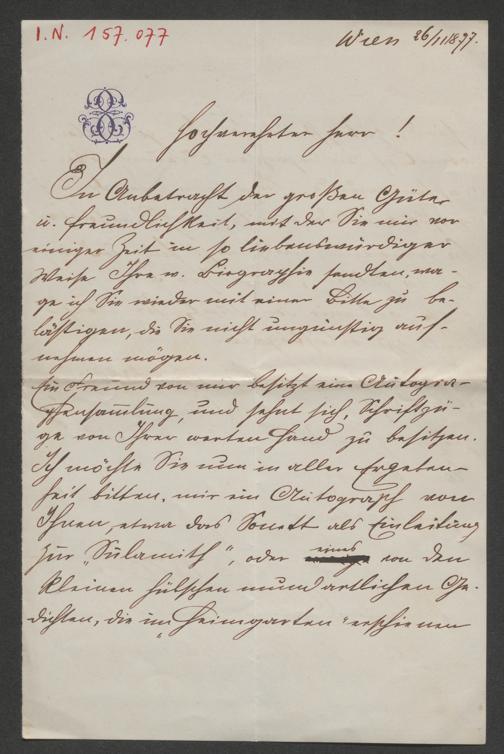 I.N. 157.077
Wien 26/11 1897.
Hochverehrter Herr!
In Anbetracht der großen Güte
u. Freundlichkeit, mit der Sie mir vor
einiger Zeit in so liebenswürdiger
Weise Ihre w. Biographie sandten, wa-
ge ich Sie wieder mit einer Bitte zu be-
lästigen, die Sie nicht ungünstig auf-
nehmen mögen.
Ein Freund von mir besitzt eine Autogra-
phensammlung, und sehnt sich, Schriftzü-
ge von Ihrer werten Hand zu besitzen.
Ich möchte Sie nun in aller Ergeben-
heit bitten, mir ein Autograph von
Ihnen, etwa das Sonett als Einleitung
zur „Sulamith", oder eines von den
kleinen hübschen mundartlichen Ge-
dichten, die im „Heimgarten" erschienen